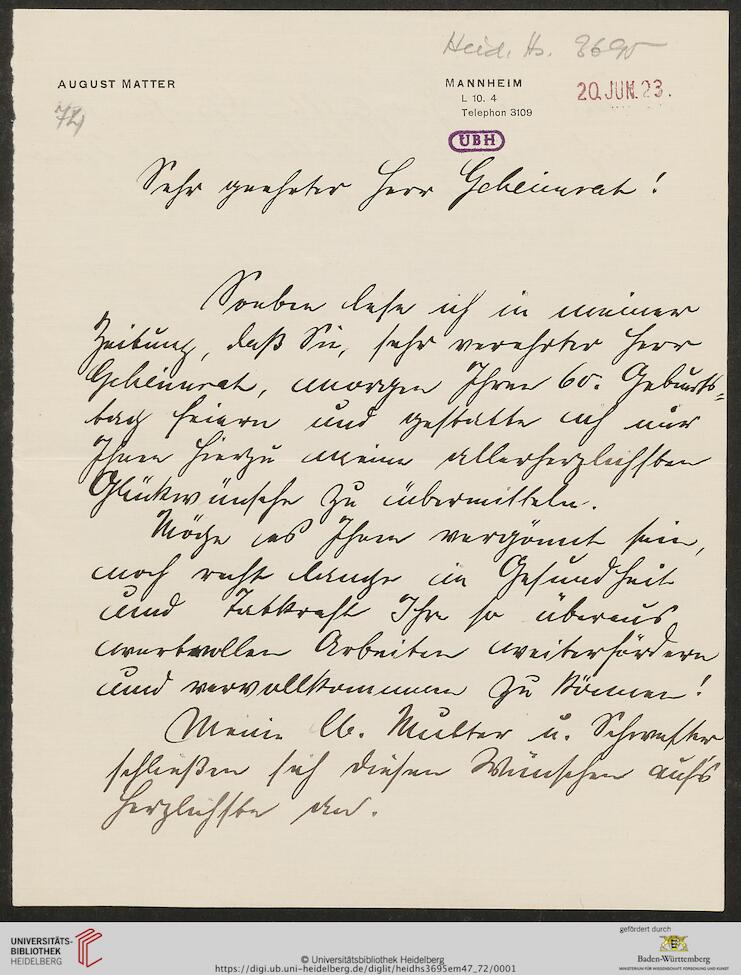 Heid. Hs. 3695
AUGUST MATTER
MANNHEIM
L 10. 4
Telephon 3109
20. JUN. 23.
72)
UBH
Sehr geehrter Herr Geheimrat!
Soeben lese ich in meiner
Zeitung, daß Sie, sehr verehrter Herr
Geheimrat, morgen Ihren 60. Geburts-
tag feiern und gestatte ich mir
Ihnen hierzu meine allerherzlichsten
Glückwünsche zu übermitteln.
Möge es Ihnen vergönnt sein,
noch recht lange in Gesundheit
und Tatkraft Ihre so überaus
wertvollen Arbeiten weiterfördern
und vervollkommnen zu können!
Meine lb. Mutter u. Schwester
schließen sich diesen Wünschen aufs
herzlichste an.
UNIVERSITÄTS-
BIBLIOTHEK
HEIDELBERG
© Universitätsbibliothek Heidelberg
https://digi.ub.uni-heidelberg.de/diglit/heidhs3695em47_72/0001
gefördert durch
Baden-Württemberg
MINISTERIUM FÜR WISSENSCHAFT, FORSCHUNG UND KUNST